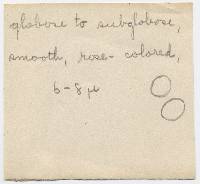 globose to subglobose,
smooth, rose-colored,
6-8 μ